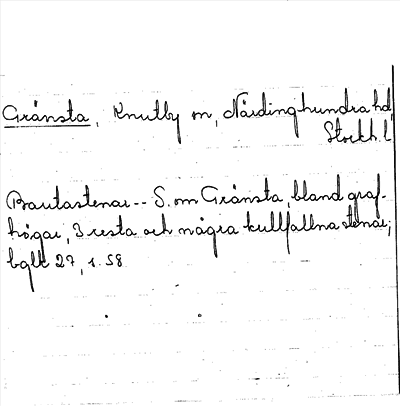 Gränsta, Knutby sn, Närdinghundra hd,
Stockh. l
Bautastenar -- S. om Gränsta, bland graf-
högar, 3 resta och några kullfallna stenar;
bglt 27, s. 58